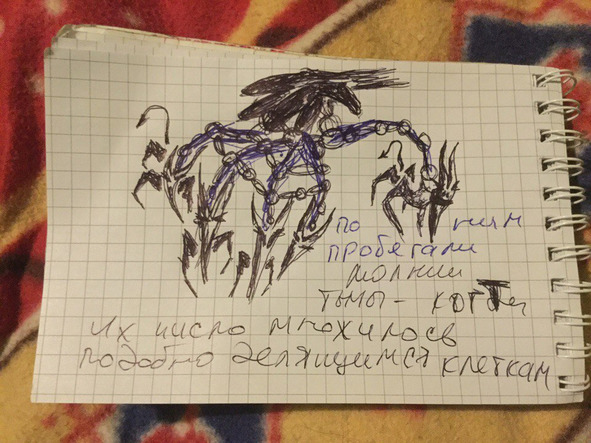 по ним
пробегали
молнии
тьмы - когти
Их число множилось
подобно делящимся клеткам